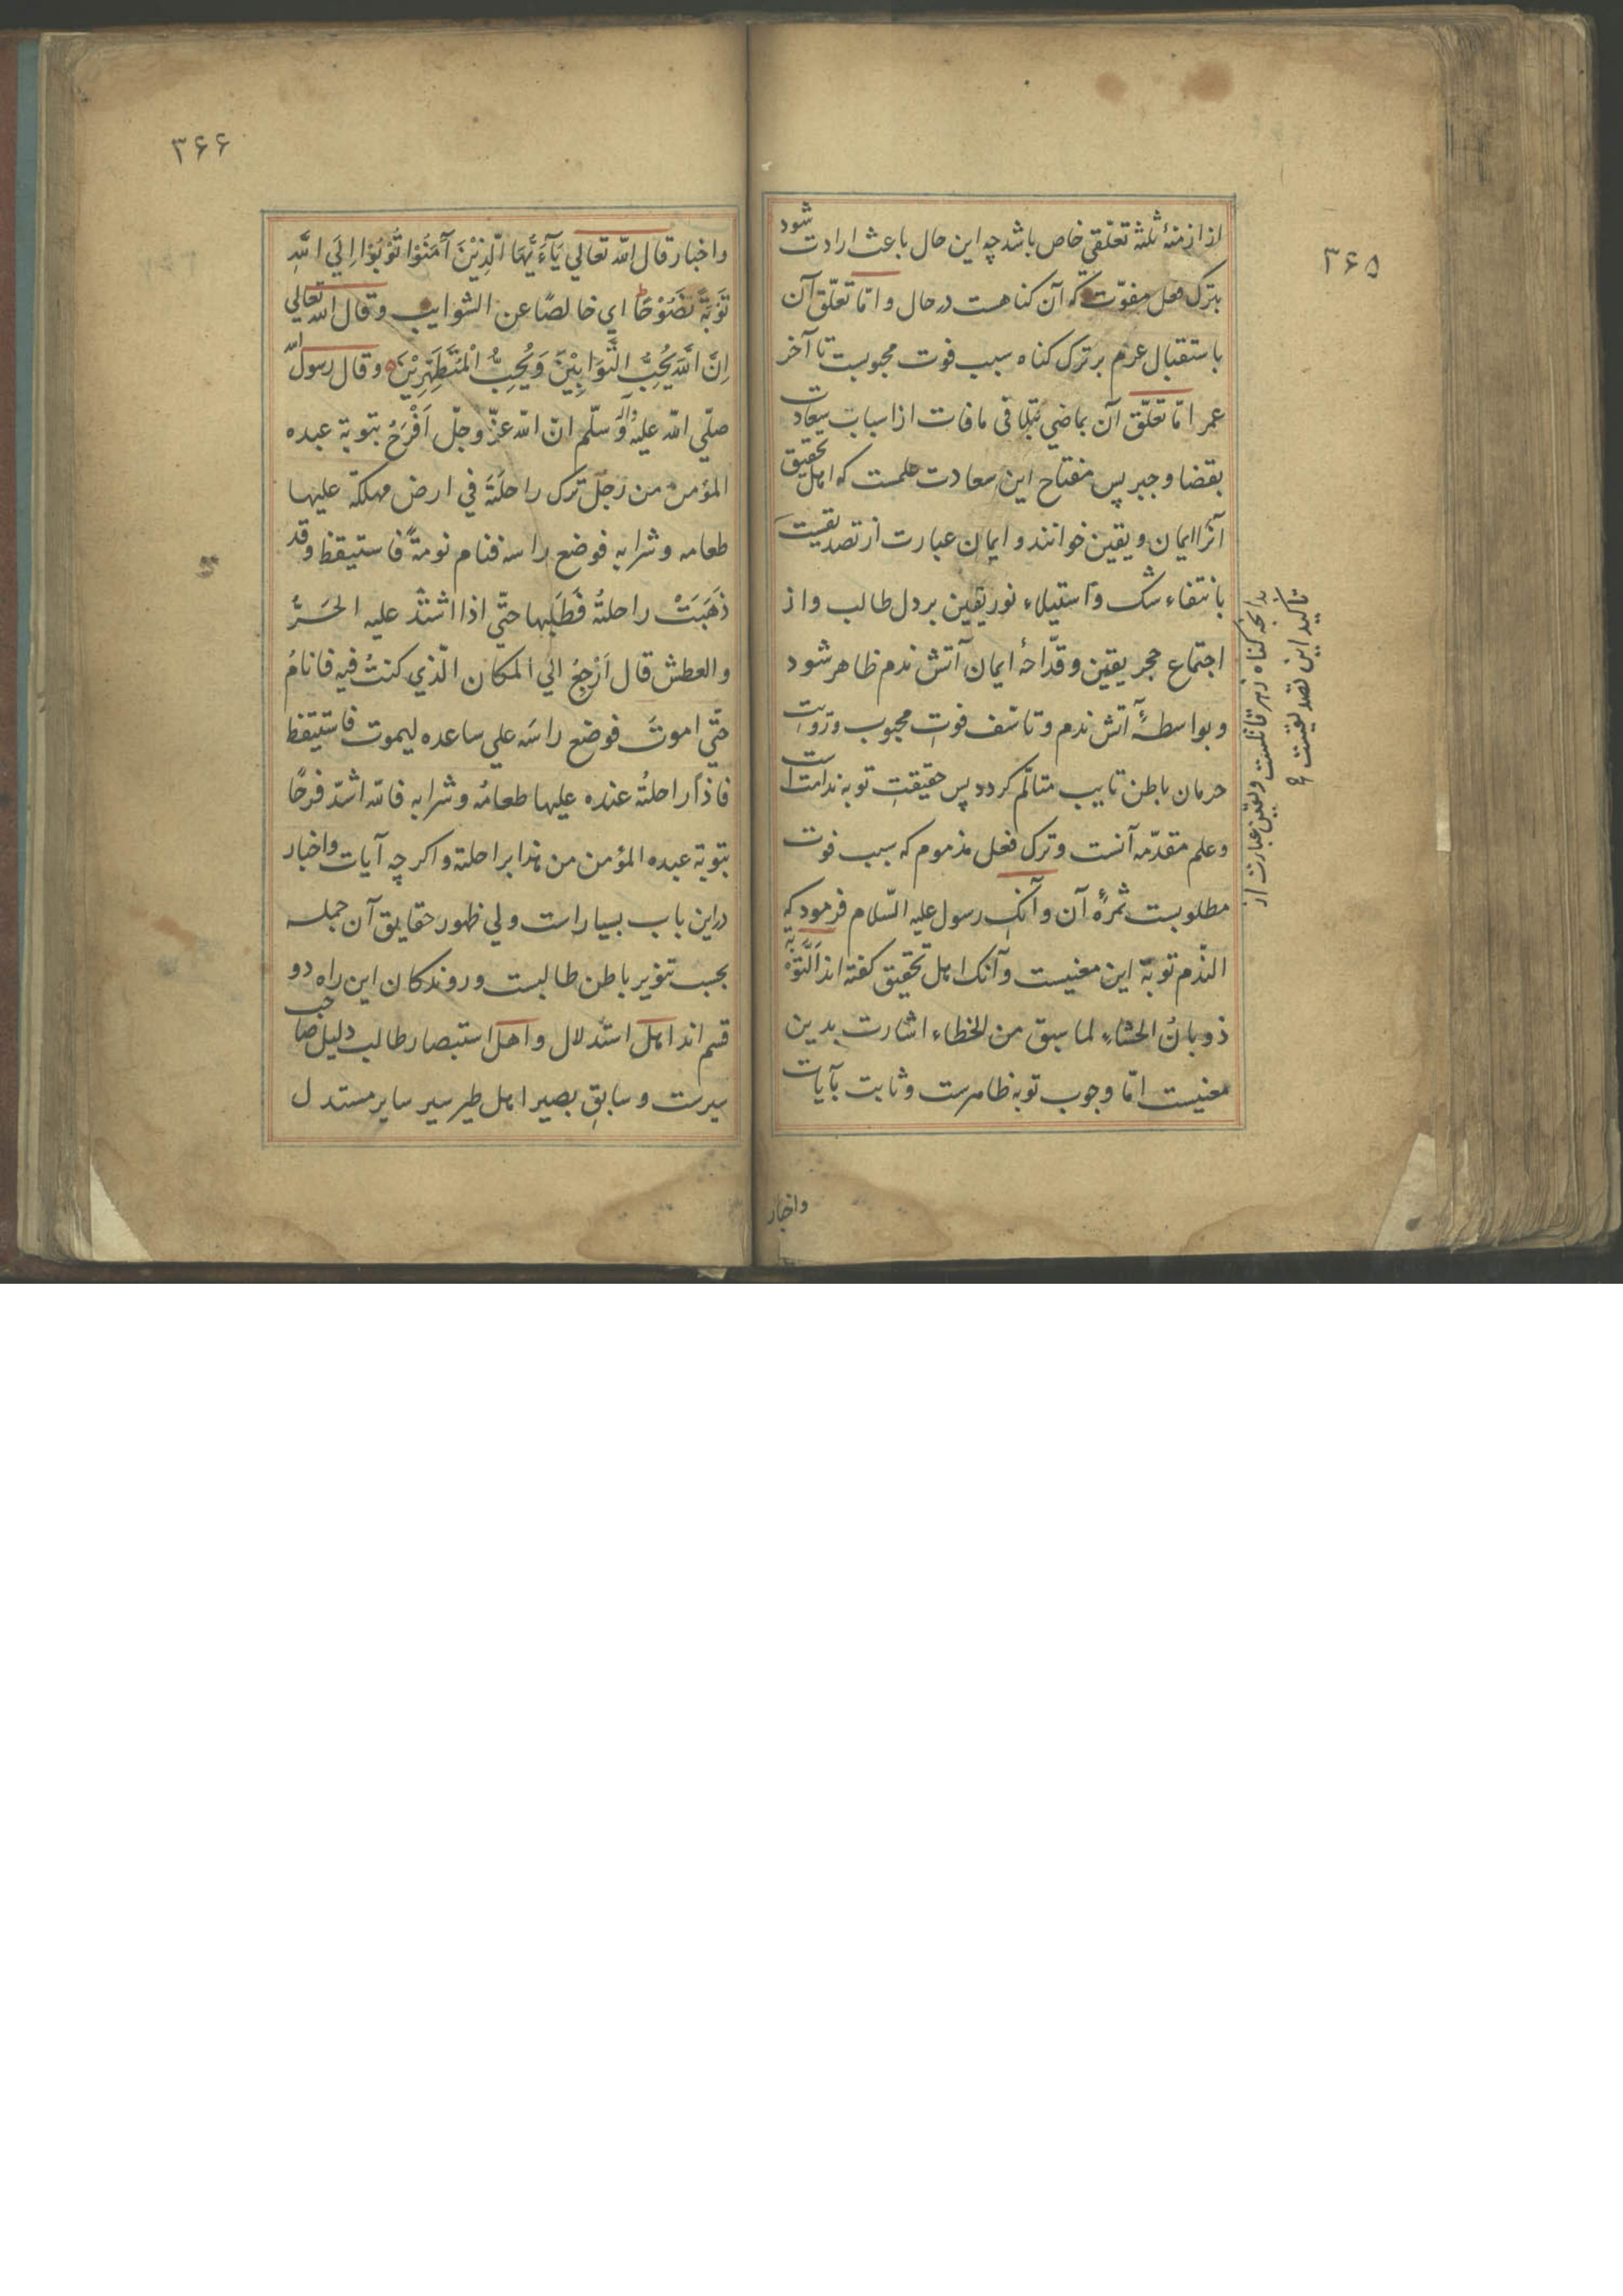 ۳۶۵
از ازمنهٔ ثلثه تعلّقی خاص باشد چه این حال باعث ارادت شود
بترک فعل مفوّت که آن کناهست در حال و امّا تعلّق آن
باستقبال عزم بر ترک کناه سبب فوت محبوبست تا آخر
عمر امّا تعلّق آن بماضی بتلافی مافات از اسباب سعادت
بقضا و جبر پس مفتاح این سعادت علمست که اهل تحقیق
آنرا ایمان و یقین خوانند و ایمان عبارت از تصدیقیست
بانتفاء شک و استیلاء نور یقین بر دل طالب و از
اجتماع حجر یقین و قدّاحهٔ ایمان آتش ندم ظاهر شود
و بواسطهٔ آتش ندم و تاسّف فوت محبوب و رویت
حرمان باطن تایب متالّم کردد پس حقیقت توبه ندامت است
و علم مقدّمه آنست و ترک فعل مذموم که سبب فوت
مطلوبست ثمرهٔ آن و آنک رسول علیه السّلام فرمود که
النّدم توبة این معنیست و آنک اهل تحقیق کفته اند اَلتَّوبَة
ذوبانُ الحشاءِ لما سبق من الخطاء اشارت بدین
معنیست امّا وجوب توبه ظاهرست و ثابت بآیات
بدانچه کناه زهر قاتلست و یقین عبارت از
تاکید این تصدیقیست
واخبار
۳۶۶
واخبار قال الله تعالي يَآءَيُّهَا الَّذِيْنَ آمَنُوْا تُوْبُوْا اِلَي اللّٰهِ
تَوْبَةً نَصُوْحًا اي خالصًا عن الشوايب وقال الله تعالي
اِنَّ اللّٰهَ يُحِبُّ التَّوَابِيْنَ وَيُحِبُّ الْمُتَطَهِّرِيْنَ وقال رسول الله
صلّي الله عليه وآله وسلّم انّ الله عزّ وجلّ اَفْرَحُ بتوبة عبده
المؤمن من رجل ترك راحلَةً في ارض مهلكة عليها
طعامه وشرابه فوضع راسه فنام نومةً فاستيقظ وقد
ذَهَبَتْ راحلتُه فَطَلَبها حتّي اذا اشتدّ عليه الحَرُّ
والعطش قال اَرْجِعُ الي المكان الّذي كنتُ فيه فانامُ
حتّي اموتَ فوضع راسَه علي ساعده ليموت فاستيقظ
فاذا راحلتُه عنده عليها طعامُه وشرابه فالله اشدّ فرحًا
بتوبة عبده المؤمن من هذا براحلته واکرچه آیات واخبار
دراین باب بسیار است ولي ظهور حقایق آن جمله
بحسب تنویر باطن طالبست و روندکان این راه دو
قسم اند اهل استدلال و اهل استبصار طالب دلیل صاحب
سیرست و سابق بصیر اهل طیر سیر سایر مستدل